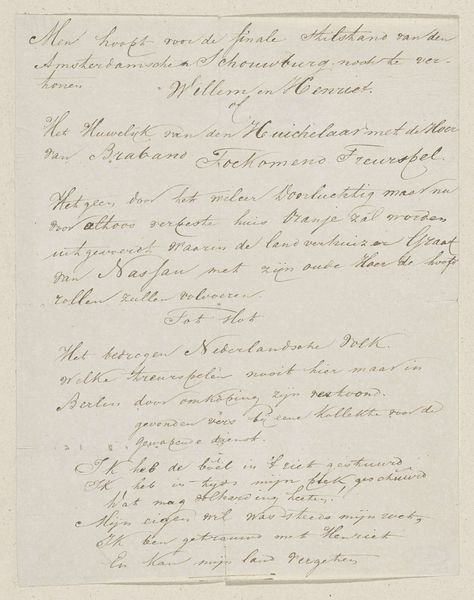 Men hoopt voor de finale Stilstand van den
Amsterdamschen Schouwburg noch te ver-
tonen
Willem en Henriet.
of
Het Huwelyk van den Huichelaar met de Hoer
van Braband Toekomend Treurspel.
Hetgeen door het weleer Doorluchtig maar nu
voor althoos verbeste huis Oranje zal worden
uitgevoerdt waarin de landverhuizer Graaf
van Nassau met zijn oude Hoer de hoofd
rollen zullen volvoeren.
Tot Slot
Het bedrogen Nederlandsche Volk.
Welke treurspelen nooit hier maar in
Berlin door omkoping zijn vertoond.
gevonden vers bij eene Kollekte voor de
gewapende dienst.
Ik heb de boel in 't riet gestuurd
Ik heb in tyds mijn geschuurd
Wat mag volharding heeten!
Mijn eigen wil was steeds mijn wet,
Ik ben getrauwd met Henriet
En kan mijn land vergeten